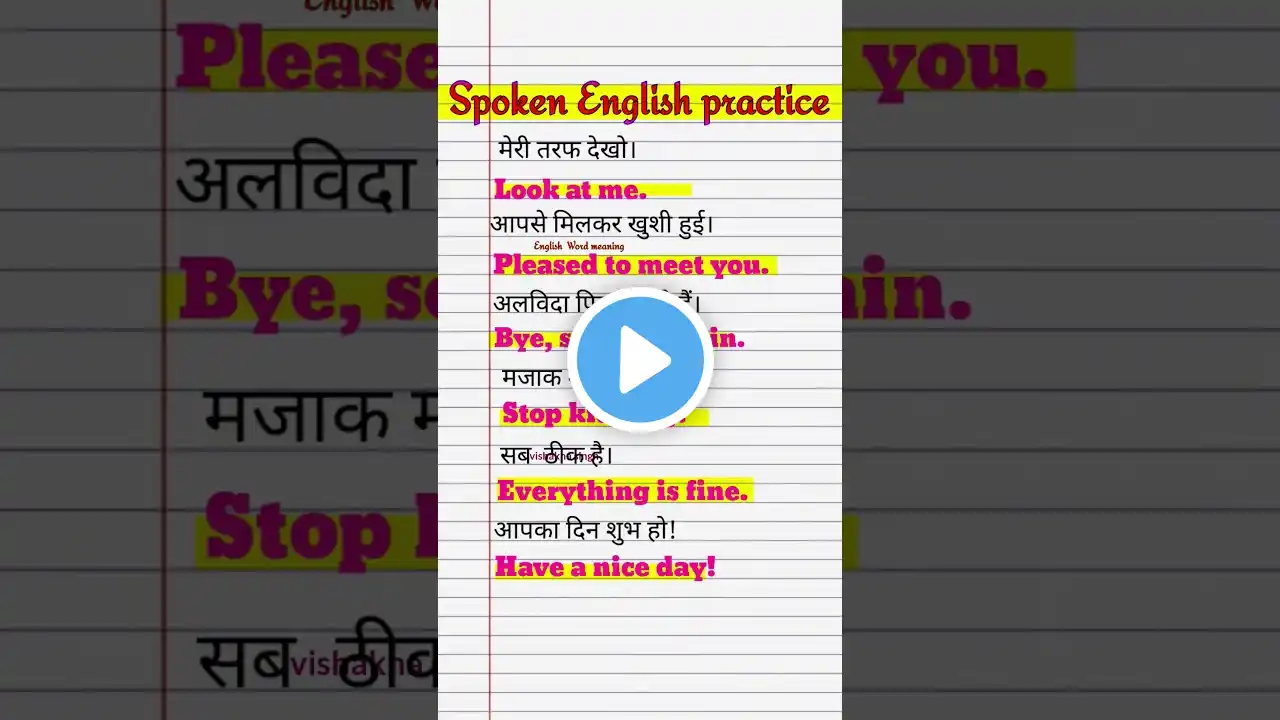 Spoken English practice
मेरी तरफ देखो।
Look at me.
आपसे मिलकर खुशी हुई।
English Word meaning
Pleased to meet you.
अलविदा
Bye,
मजाक
Stop
सब ठीक है।
Everything is fine.
आपका दिन शुभ हो!
Have a nice day!